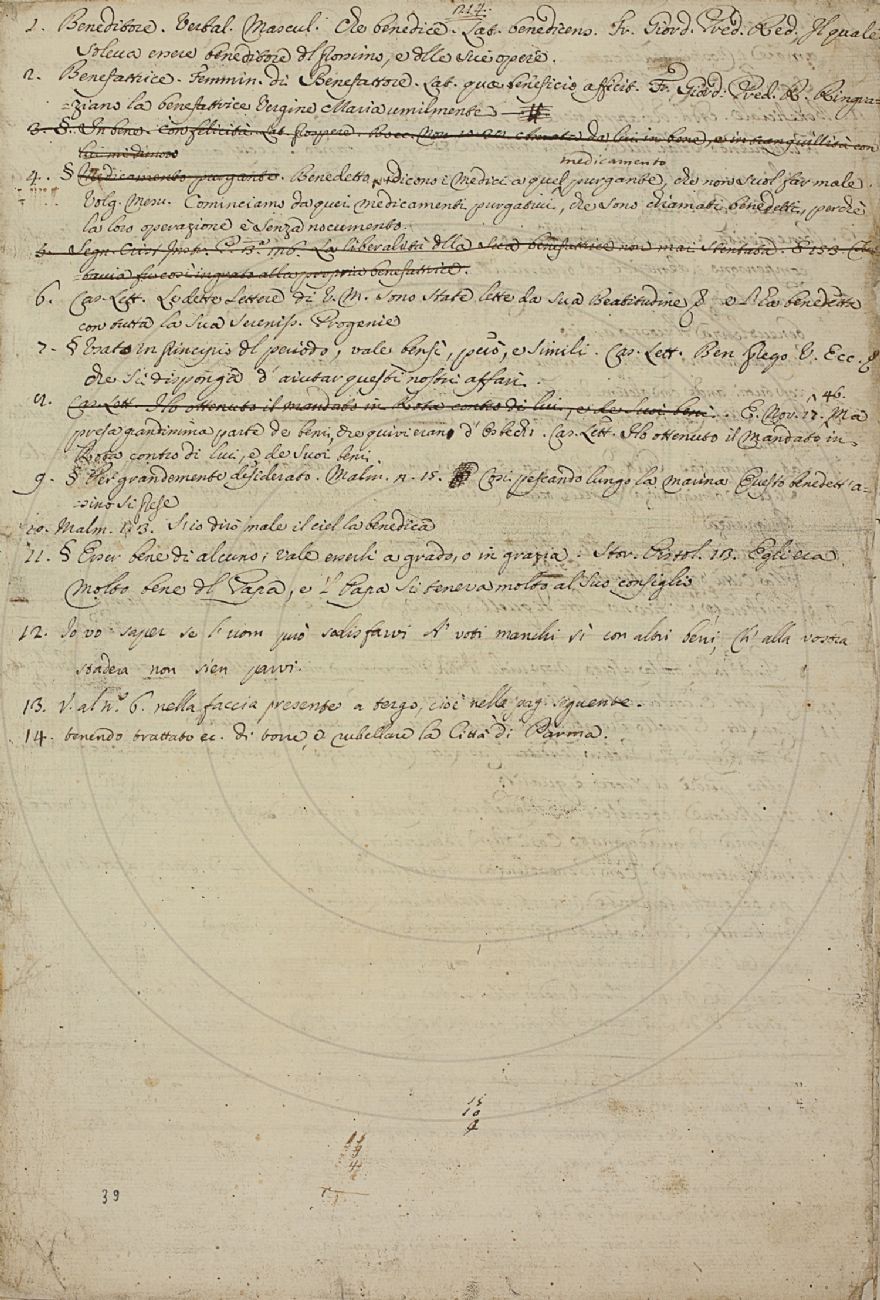 214.
1. Beneditore. Verbal. Mascul. Che benedice. Lat. benedicens. Fr. Giord. Pred. Red. Il quale
Soleva essere beneditore del prossimo, e delle sue opere.
2. Benefattrice. Femmin. di Benefattore. Lat. quae beneficio afficit. Fr. Giord. Pred. R. Ringra-
-ziano la benefattrice Vergine Maria umilmente #
3. §. In bene. Con felicità. Lat. prospere. Bocc. Nov. da lui in bene, e in tranquillità con
lui mi dimoro
medicamento
4. § Medicamento purgante. Benedetto, dicono i Medici a quel purgante, che non suol far male.
Volg. Mesu. Cominciamo da quei medicamenti purgativi, che sono chiamati benedetti, perchè
la loro operazione è senza nocumento.
5. Segn. Crist. Instr. P. 3.ª 176. La liberalità della sua benefattrice non mai stentata. E 253.
-tavia fu così ingrato alla propria benefattrice.
6. Cas. Lett. Le dette Lettere di V. M. sono state lette da Sua Beatitudine e benedette
con tutta la sua Sereniss. Progenie
7. § Usato in principio del periodo, vale bensì, però, e simili. Cas. Lett. Ben prego V. Ecc.
che si disponga d'aiutar questi nostri affari.
Cas. Lett. Ho ottenuto il mandato in Rota contro di lui, e de suoi beni. E. Nov. 17. 46. Ma
presa grandissima parte de beni, che quivi erano d'Osbech. Cas. Lett. Ho ottenuto il Mandato in
Rota contro di lui, e de Suoi beni.
9. § Per grandemente desiderato. Malm. n. 15. Così pescando lungo la marina Questo benedett'a-
-sino si prese
10. Malm. 1. 13. S'io dirò male il ciel la benedica
11. § Esser bene di alcuno; vale esserli a grado, o in grazia. Stor. Pistol. 113. Egli era
molto bene del Papa, e 'l Papa si teneva molto al Suo consiglio
12. Io vo' saper se l'uom può sodisfarvi A' voti manchi sì con altri beni, Ch' alla vostra
stadera non sien parvi.
13. V. al n.º 6. nella faccia presente a tergo, cioè nella pag. siguente.
14. tenendo trattato ec. di torre, e rubellare la Città di Parma.
15
10
11
9
4
39